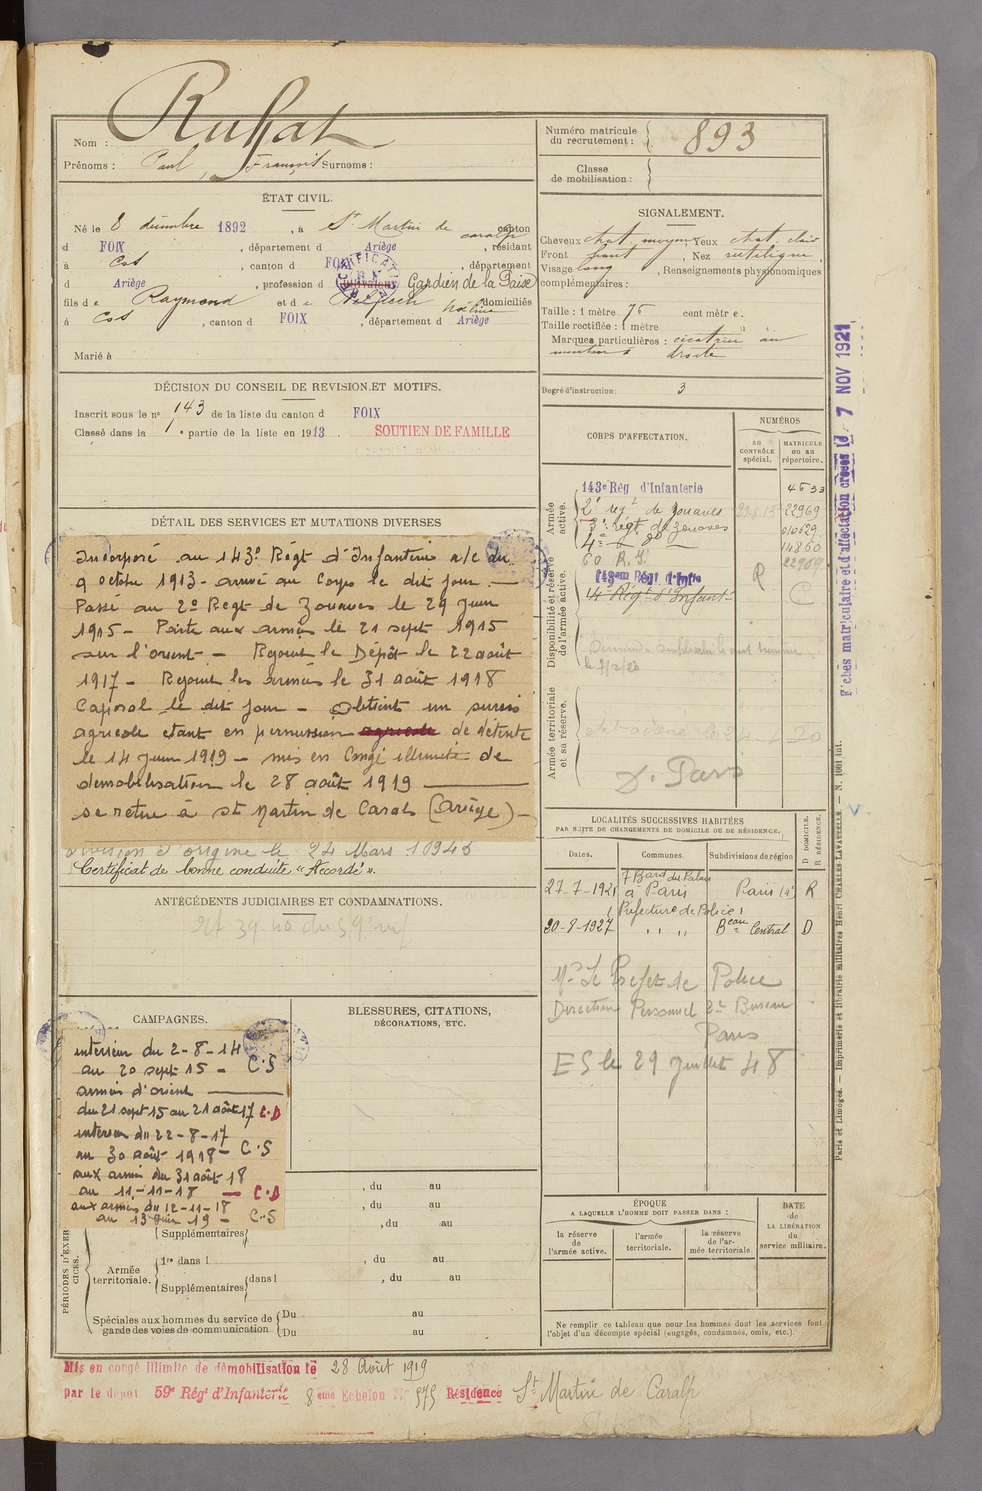 Nom : Ruffat
Prénoms : Paul, François Surnoms :
Numéro matricule du recrutement : 893
Classe de mobilisation :
ÉTAT CIVIL.
Né le 8 décembre 1892, à St Martin de Caralp canton
d FOIX, département d Ariège, résidant
à Cos, canton d FOIX, département
d Ariège, profession d cultivateur Gardien de la Paix
fils de Raymond et de Delpech Noélie domiciliés
à Cos, canton d FOIX, département d Ariège
Marié à
DÉCISION DU CONSEIL DE REVISION ET MOTIFS.
Inscrit sous le no 143 de la liste du canton d FOIX
Classé dans la 1e partie de la liste en 1913. SOUTIEN DE FAMILLE
DÉTAIL DES SERVICES ET MUTATIONS DIVERSES
Incorporé au 143e Régt d'Infanterie a/c du
9 octobre 1913 - arrivé au Corps le dit jour. —
Passé au 2e Regt de Zouaves le 29 Juin
1915 - Parti aux armées le 21 sept 1915
sur l'orient - Rejoint le Dépôt le 22 août
1917 - Rejoint les armées le 31 août 1918
Caporal le dit jour - Obtient un sursis
agricole etant en permission agricole de détente
le 14 Juin 1919 - mis en Congé illimité de
démobilisation le 28 août 1919 —
se retire à St Martin de Caralp (Ariège) -
division d'origine le 24 Mars 1
Certificat de bonne conduite "Accordé".
ANTÉCÉDENTS JUDICIAIRES ET CONDAMNATIONS.
CAMPAGNES.
intérieur du 2-8-14
au 20 sept 15 - C.S
armées d'orient —
du 21 sept 15 au 21 août 17 C.D
intérieur du 22-8-17
au 30 août 1918 - C.S
aux armées du 31 août 18
au 11-11-18 — C.D
aux armées du 12-11-18
au 13 Juin 19 - C.S
BLESSURES, CITATIONS,
DÉCORATIONS, ETC.
PÉRIODES D'EXERCICES.
, du au
, du au
Supplémentaires , du au
Armée territoriale.
1re dans l , du au
Supplémentaires dans l , du au
Spéciales aux hommes du service de garde des voies de communication
Du au
Du au
SIGNALEMENT.
Cheveux chat. moyen Yeux chat. clair
Front haut, Nez rectiligne,
Visage long, Renseignements physionomiques
complémentaires :
Taille : 1 mètre 75 centimètres.
Taille rectifiée : 1 mètre "
Marques particulières : cicatrice au
menton à droite
Degré d'instruction : 3
CORPS D'AFFECTATION.
NUMÉROS
AU CONTRÔLE spécial.
MATRICULE OU AU répertoire.
Armée active.
143e Rég d'Infanterie 4633
2e régt de zouaves 22969
3e régt de zouaves 010629
4e — do — 14860
Disponibilité et réserve de l'armée active.
60 R.I. 22969
143eme Régt d'Inftie R
14e Régt d'Infant.
Armée territoriale et sa réserve.
D. Paris
LOCALITÉS SUCCESSIVES HABITÉES
PAR SUITE DE CHANGEMENTS DE DOMICILE OU DE RÉSIDENCE.
Dates. Communes. Subdivisions de région D DOMICILE. R RÉSIDENCE.
27-7-1921 7 Bard du Palais à Paris Paris (4e) R
(Préfecture de Police)
20-9-1927 " " " Beau Central D
Mr Le Préfet de Police
Direction Personnel 2e Bureau
Paris
ES le 29 juillet 48
ÉPOQUE
A LAQUELLE L'HOMME DOIT PASSER DANS :
la réserve de l'armée active.
l'armée territoriale.
la réserve de l'armée territoriale.
DATE de LA LIBÉRATION du service militaire.
Ne remplir ce tableau que pour les hommes dont les services font
l'objet d'un décompte spécial (engagés, condamnés, omis, etc.).
Mis en congé illimité de démobilisation le 28 Août 1919
par le dépôt 59e Régt d'Infanterie 8ème Echelon No 575 Résidence St Martin de Caralp
Fiches matriculaire et d'affectation créées le 7 NOV 1921
Paris et Limoges. — Imprimerie et librairie militaires Henri CHARLES-LAVAUZELLE — N. 1601 int.